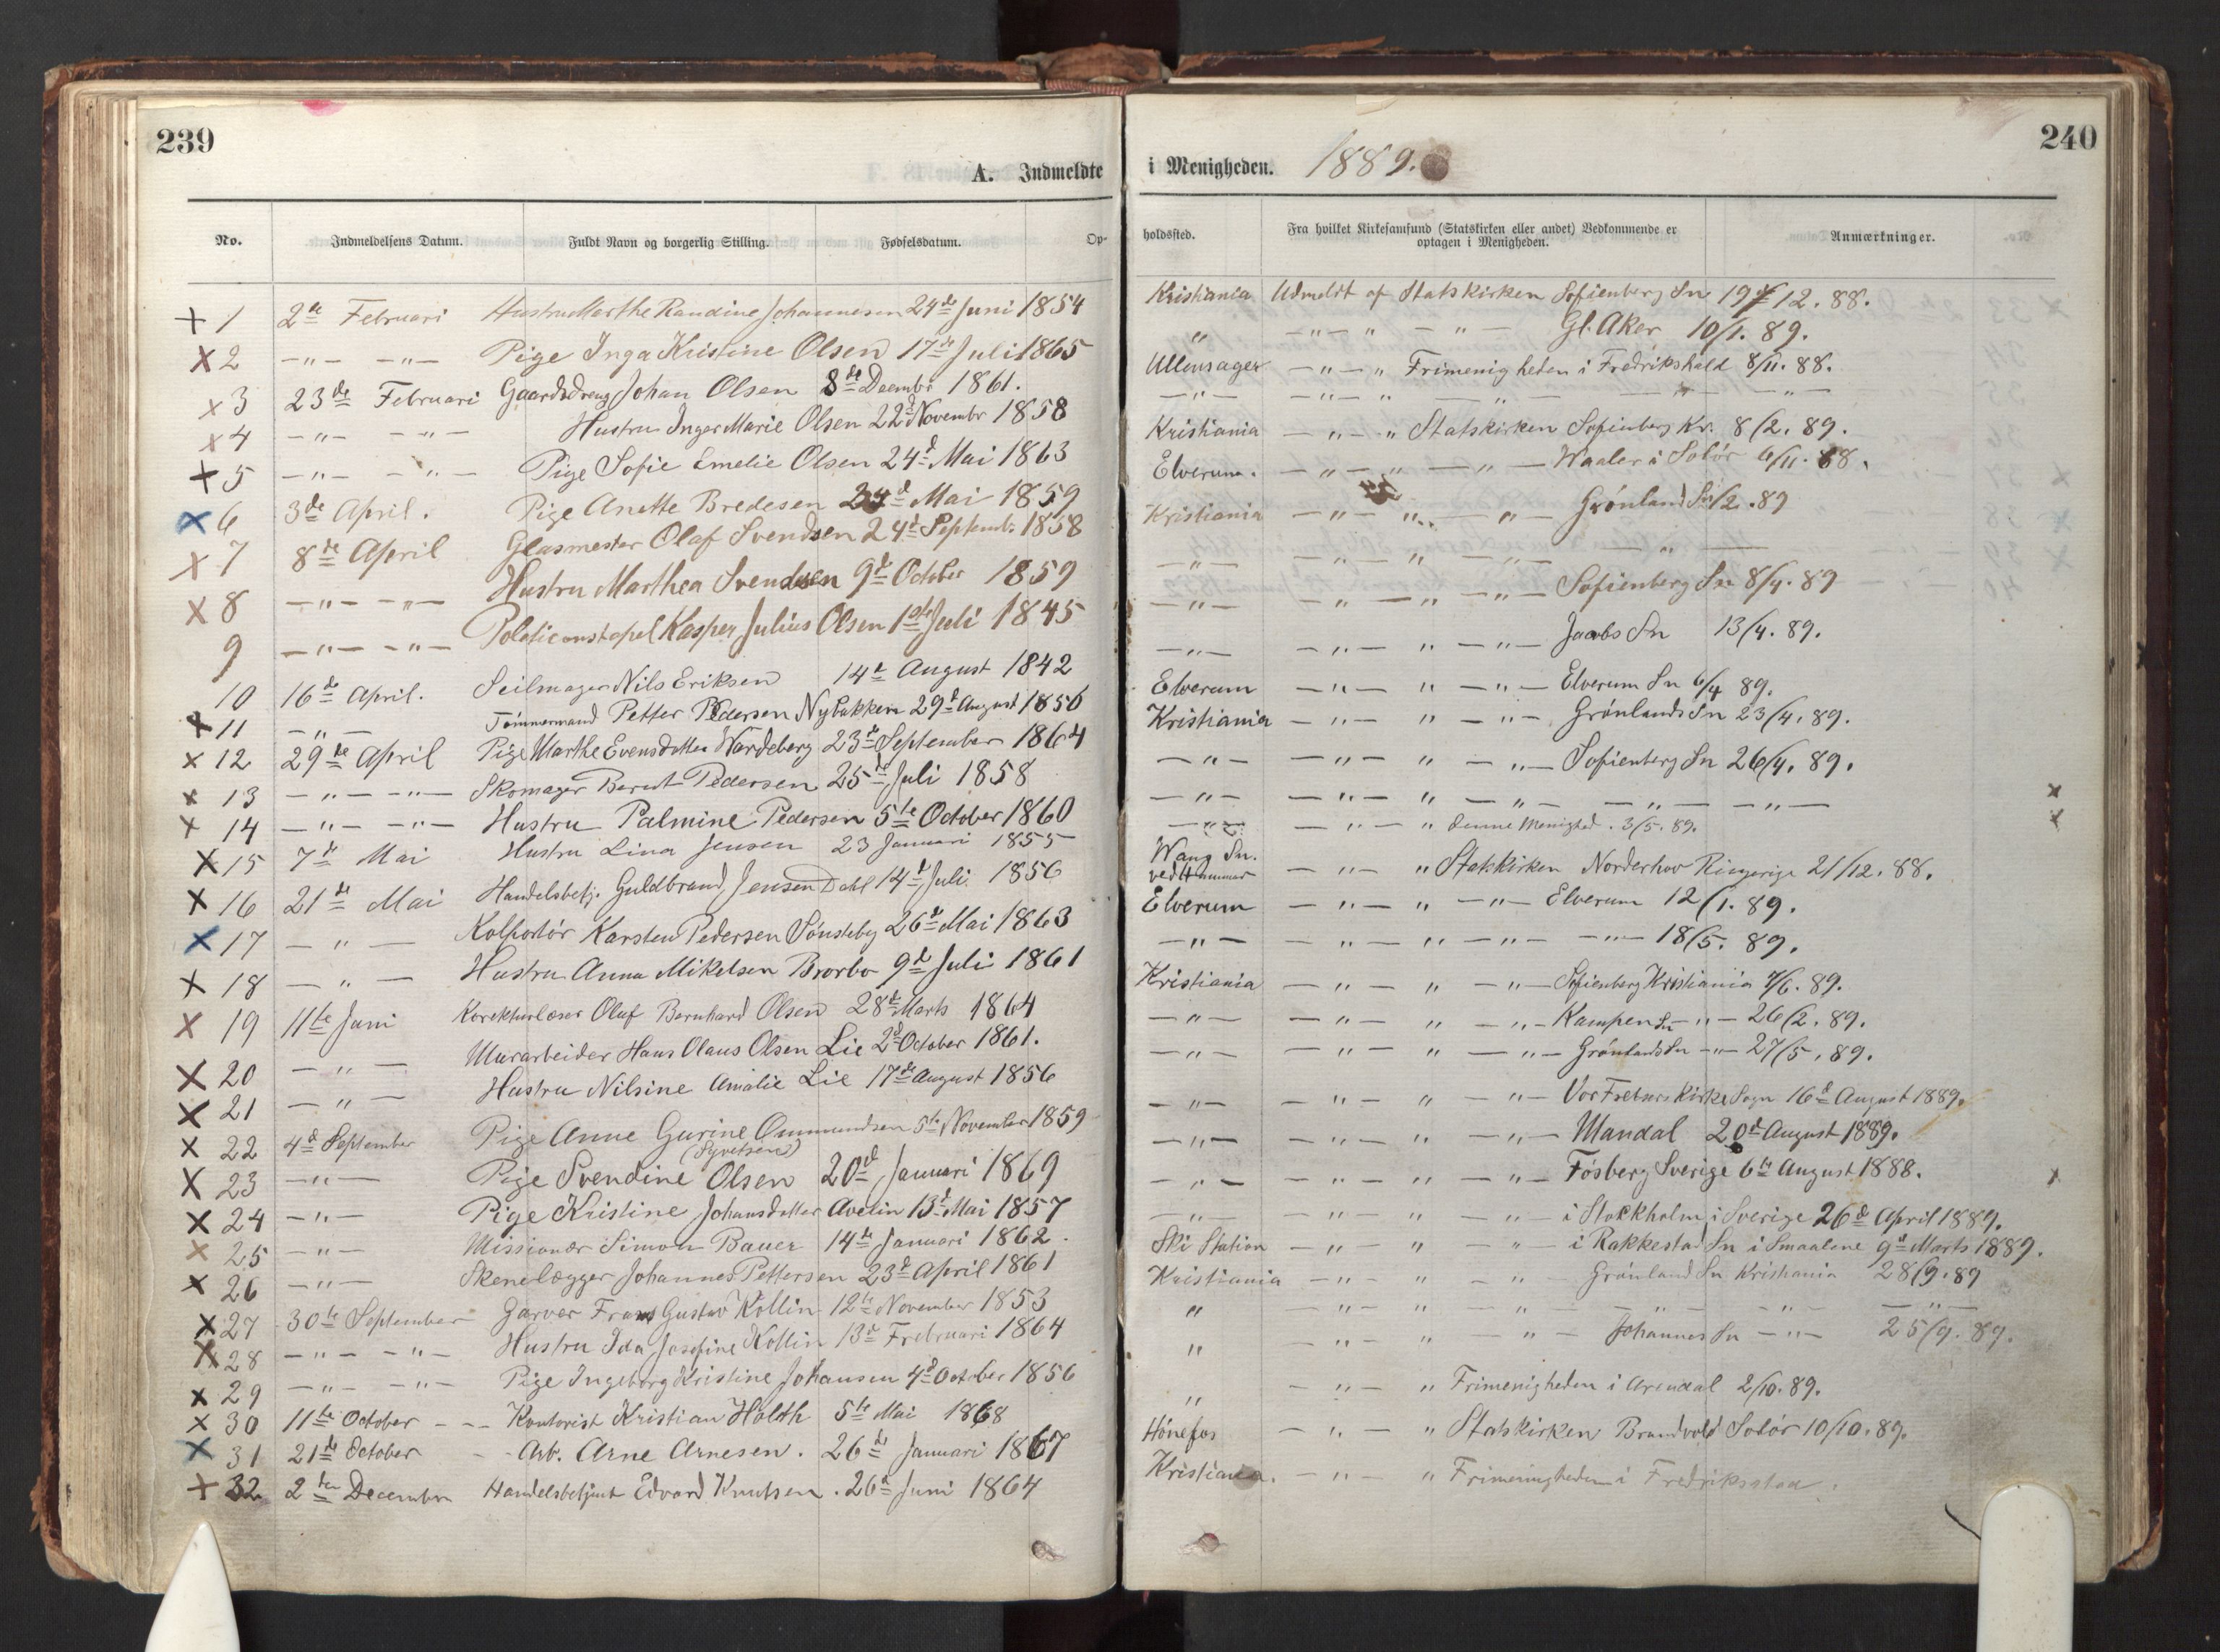 239
A. Indmeldte
No. Indmeldelsens Datum. Fuldt Navn og borgerlig Stilling. Fødselsdatum. Op-
+ 1 2de Februari Hustru Marthe Randine Johannesen 24de Juni 1854
x 2 —"— —"— Pige Inga Kristine Olsen 17de Juli 1865
x 3 23de Februari Gaardsdreng Johan Olsen 8de Decembr 1861.
x 4 —"— —"— Hustru Inger Marie Olsen 22d Novembr 1858
+ 5 —"— —"— Pige Sofie Emelie Olsen 24d Mai 1863
x 6 3de April. Pige Anette Bredesen 24d Mai 1859
x 7 8de April Glasmester Olaf Svendsen 24d Septembr 1858
x 8 —"— —"— Hustru Marthea Svendsen 9d October 1859
9 —"— —"— Politiconstapel Kasper Julius Olsen 1ste Juli 1845
10 16de April. Seilmager Nils Eriksen 14d August 1842
x 11 —"— Tømmermand Petter Pedersen Nybakken 29d August 1856
x 12 29de April Pige Marthe Evensdatter Hardeberg 23d September 1864
x 13 —"— —"— Skomager Bernt Pedersen 25de Juli 1858
x 14 —"— —"— Hustru Palmine Pedersen 5te October 1860
x 15 7de Mai Hustru Lina Jensen 23 Januari 1855
x 16 21de Mai Handelsbetj. Guldbrand Jensen Dahl 14d Juli 1856
x 17 —"— Kolportør Karsten Pedersen Sønsteby 26d Mai 1863
x 18 —"— Hustru Anna Mikelsen Brorbo 9d Juli 1861
x 19 11te Juni Korekturlæser Oluf Bernhard Olsen 28d Marts 1864
x 20 —"— Murarbeider Hans Olaus Olsen Lie 2d October 1861.
x 21 —"— Hustru Nilsine Amalie Lie 17de August 1856
x 22 4d September Pige Anne Gurine Ommundsen 5te November 1859
x 23 —"— Pige Svendine Olsen 20d Januari 1869
x 24 —"— Pige Kristine Johansdatter Avelin 13d Mai 1857
x 25 —"— Missionær Simon Bauer 14de Januari 1862.
x 26 —"— Skenelægger Johannes Pettersen 23d April 1861
x 27 30te September Garver Frans Gustav Kollin 12te November 1853
x 28 —"— —"— Hustru Ida Josefine Kollin 13d Frebruari 1864
x 29 —"— —"— Pige Ingeborg Kristine Johansen 4d October 1856
x 30 11te October — Kontorist Kristian Holth 5te Mai 1868
x 31 21de October - Arb. Arne Arnesen. 26de Januari 1867
+ 32 2den December Handelsbetjent Edvard Knutsen. 26d Juni 1864
240
i Menigheden. 1889.
holdssted. Fra hvilket Kirkesamfund (Statskirken eller andet) Vedkommende er optagen i Menigheden. Anmærkninger.
Kristiania Udmeldt af Statskirken Sofienberg Sn 19/12. 88.
" —"— " —"— Gl. Aker 10/1. 89.
Ullensager —"— " Frimenigheden i Fredrikshald 8/11. 88.
—"— —"— —"— —"— —"—
Kristiania —"— " Statskirken Sofienberg Kr. 8/2. 89.
Elverum. —"— " —"— Waaler i Solør 6/11. 88.
Kristiania —"— " —"— Grønland Sn /2. 89
—"— —"— " —"— —"—
—"— —"— " —"— Sofienberg Sn 8/4. 89
—"— —"— " —"— Jacobs Sn 13/4. 89.
Elverum —"— " —"— Elverum Sn 6/4 89.
Kristiania —"— " —"— Grønlands Sn 23/4. 89.
—"— —"— " —"— Sofienberg Sn 26/4. 89.
—"— —"— " —"— —"— —"— x
—"— —"— " denne Menighed. 3/5. 89. x
Wang Sn. ved Hammar —"— " Statskirken Norderhov Ringerige 21/12. 88.
Elverum —"— " —"— Elverum 12/1. 89.
—"— —"— " —"— —"— 18/5. 89.
Kristiania —"— " —"— Sofienberg Kristiania 7/6. 89.
—"— —"— " —"— Kampen Sn —"— 26/2. 89.
—"— —"— " —"— Grønlands Sn —"— 27/5. 89.
—"— —"— " —"— Vor Frelsers Kirke Sogn 16d August 1889.
—"— —"— " —"— Mandal 20d August 1889.
—"— —"— " —"— Fosberg Sverige 6te August 1888. x
—"— —"— " —"— i Stokkholm i Sverige 26d April 1889.
Ski Station —"— " " — i Rakkestad Sn i Smaalene 9d Marts 1889.
Kristiania —"— " —"— Grønland Sn Kristiania 28/9. 89
" —"— " " —"— —"— —"—
" —"— " —"— Johannes Sn —"— 25/9. 89.
" —"— " Frimenigheden i Arendal 2/10. 89.
Hønefos —"— " Statskirken Brandvold Solør 10/10. 89.
Kristiania. —"— " Frimenigheden i Fredriksstad.